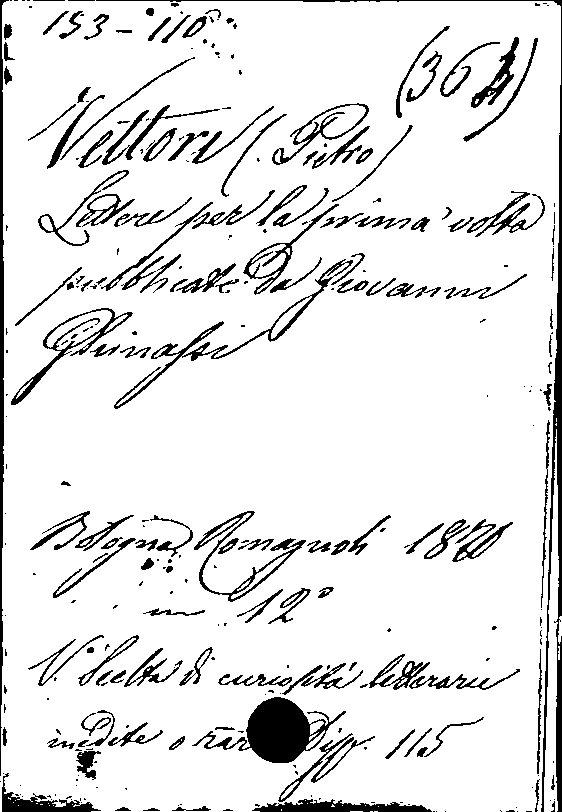 153-110
(36
Vettori (Pietro)
Lettere per la prima volta
pubblicate da Giovanni
Ghinassi
Bologna, Romagnoli 1870
in 12°
V. Scelta di curiosità letterarie
inedite o rar Disp. 115